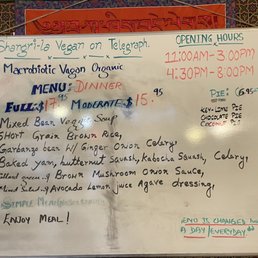 Shangri-la Vegan on Telegraph.
Macrobiotic Vegan Organic
MENU: DINNER
FULL: $17.95 MODERATE $15.95
Mixed Bean Veggie Soup
Short Grain Brown Rice,
Garbanzo bean w/ Ginger Onion Celery,
Baked yam, butternut Squash, Kabocha Squash, Celery,
Brown Mushroom Onion Sauce,
Avocado Lemon juice Agave dressing,
ENJOY MEAL!
OPENING HOURS
11:00AM-3:00PM
4:30PM-8:00PM
PIE: $6.95
KEY-LIME PIE
CHOCOLATE PIE
COCONUT PIE
MENU IS CHANGED
A DAY/EVERYDAY